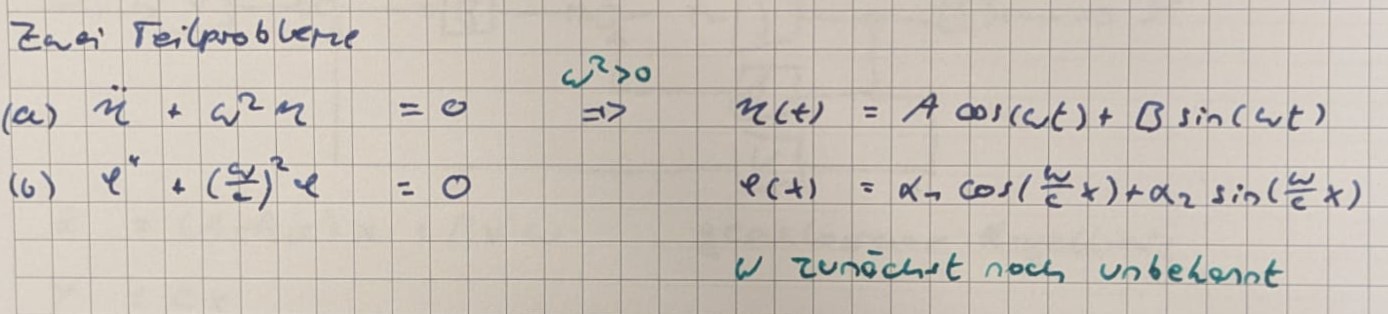 Zwei Teilprobleme
ω²>0
(a) η̈ + ω²η = 0 => η(t) = A cos(ωt) + B sin(ωt)
(b) φ" + (ω/c)²φ = 0 φ(x) = α₁ cos(ω/c x) + α₂ sin(ω/c x)
ω zunächst noch unbekannt